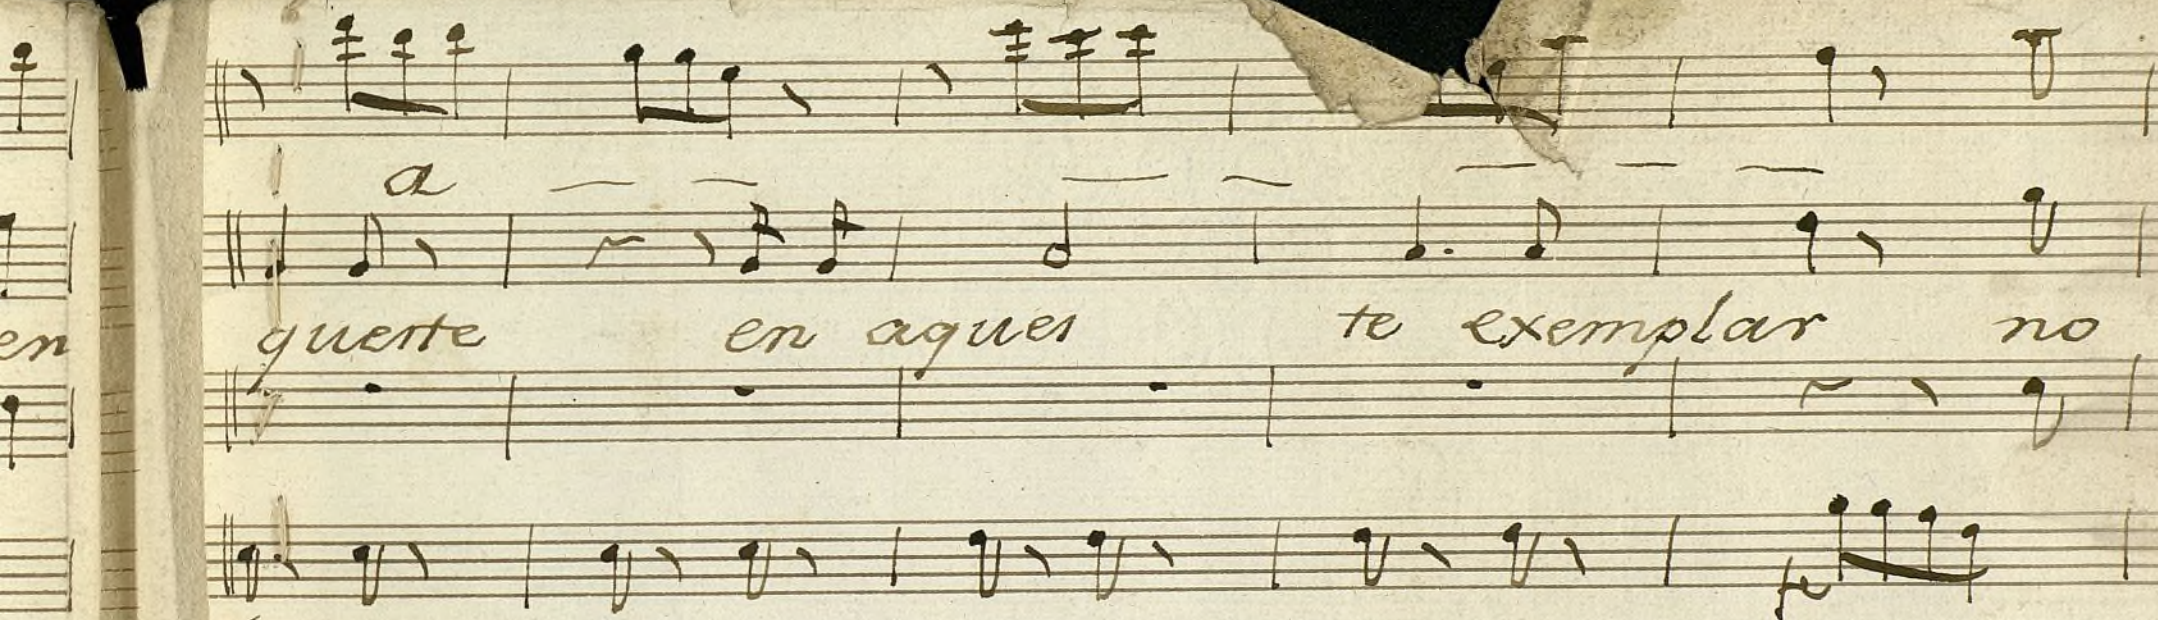 a
en querte en aques te exemplar no
fe